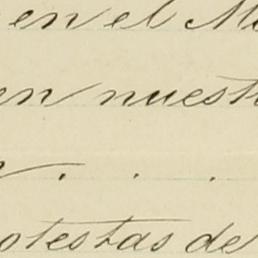 en el M
en nuest
. . .
otestas de